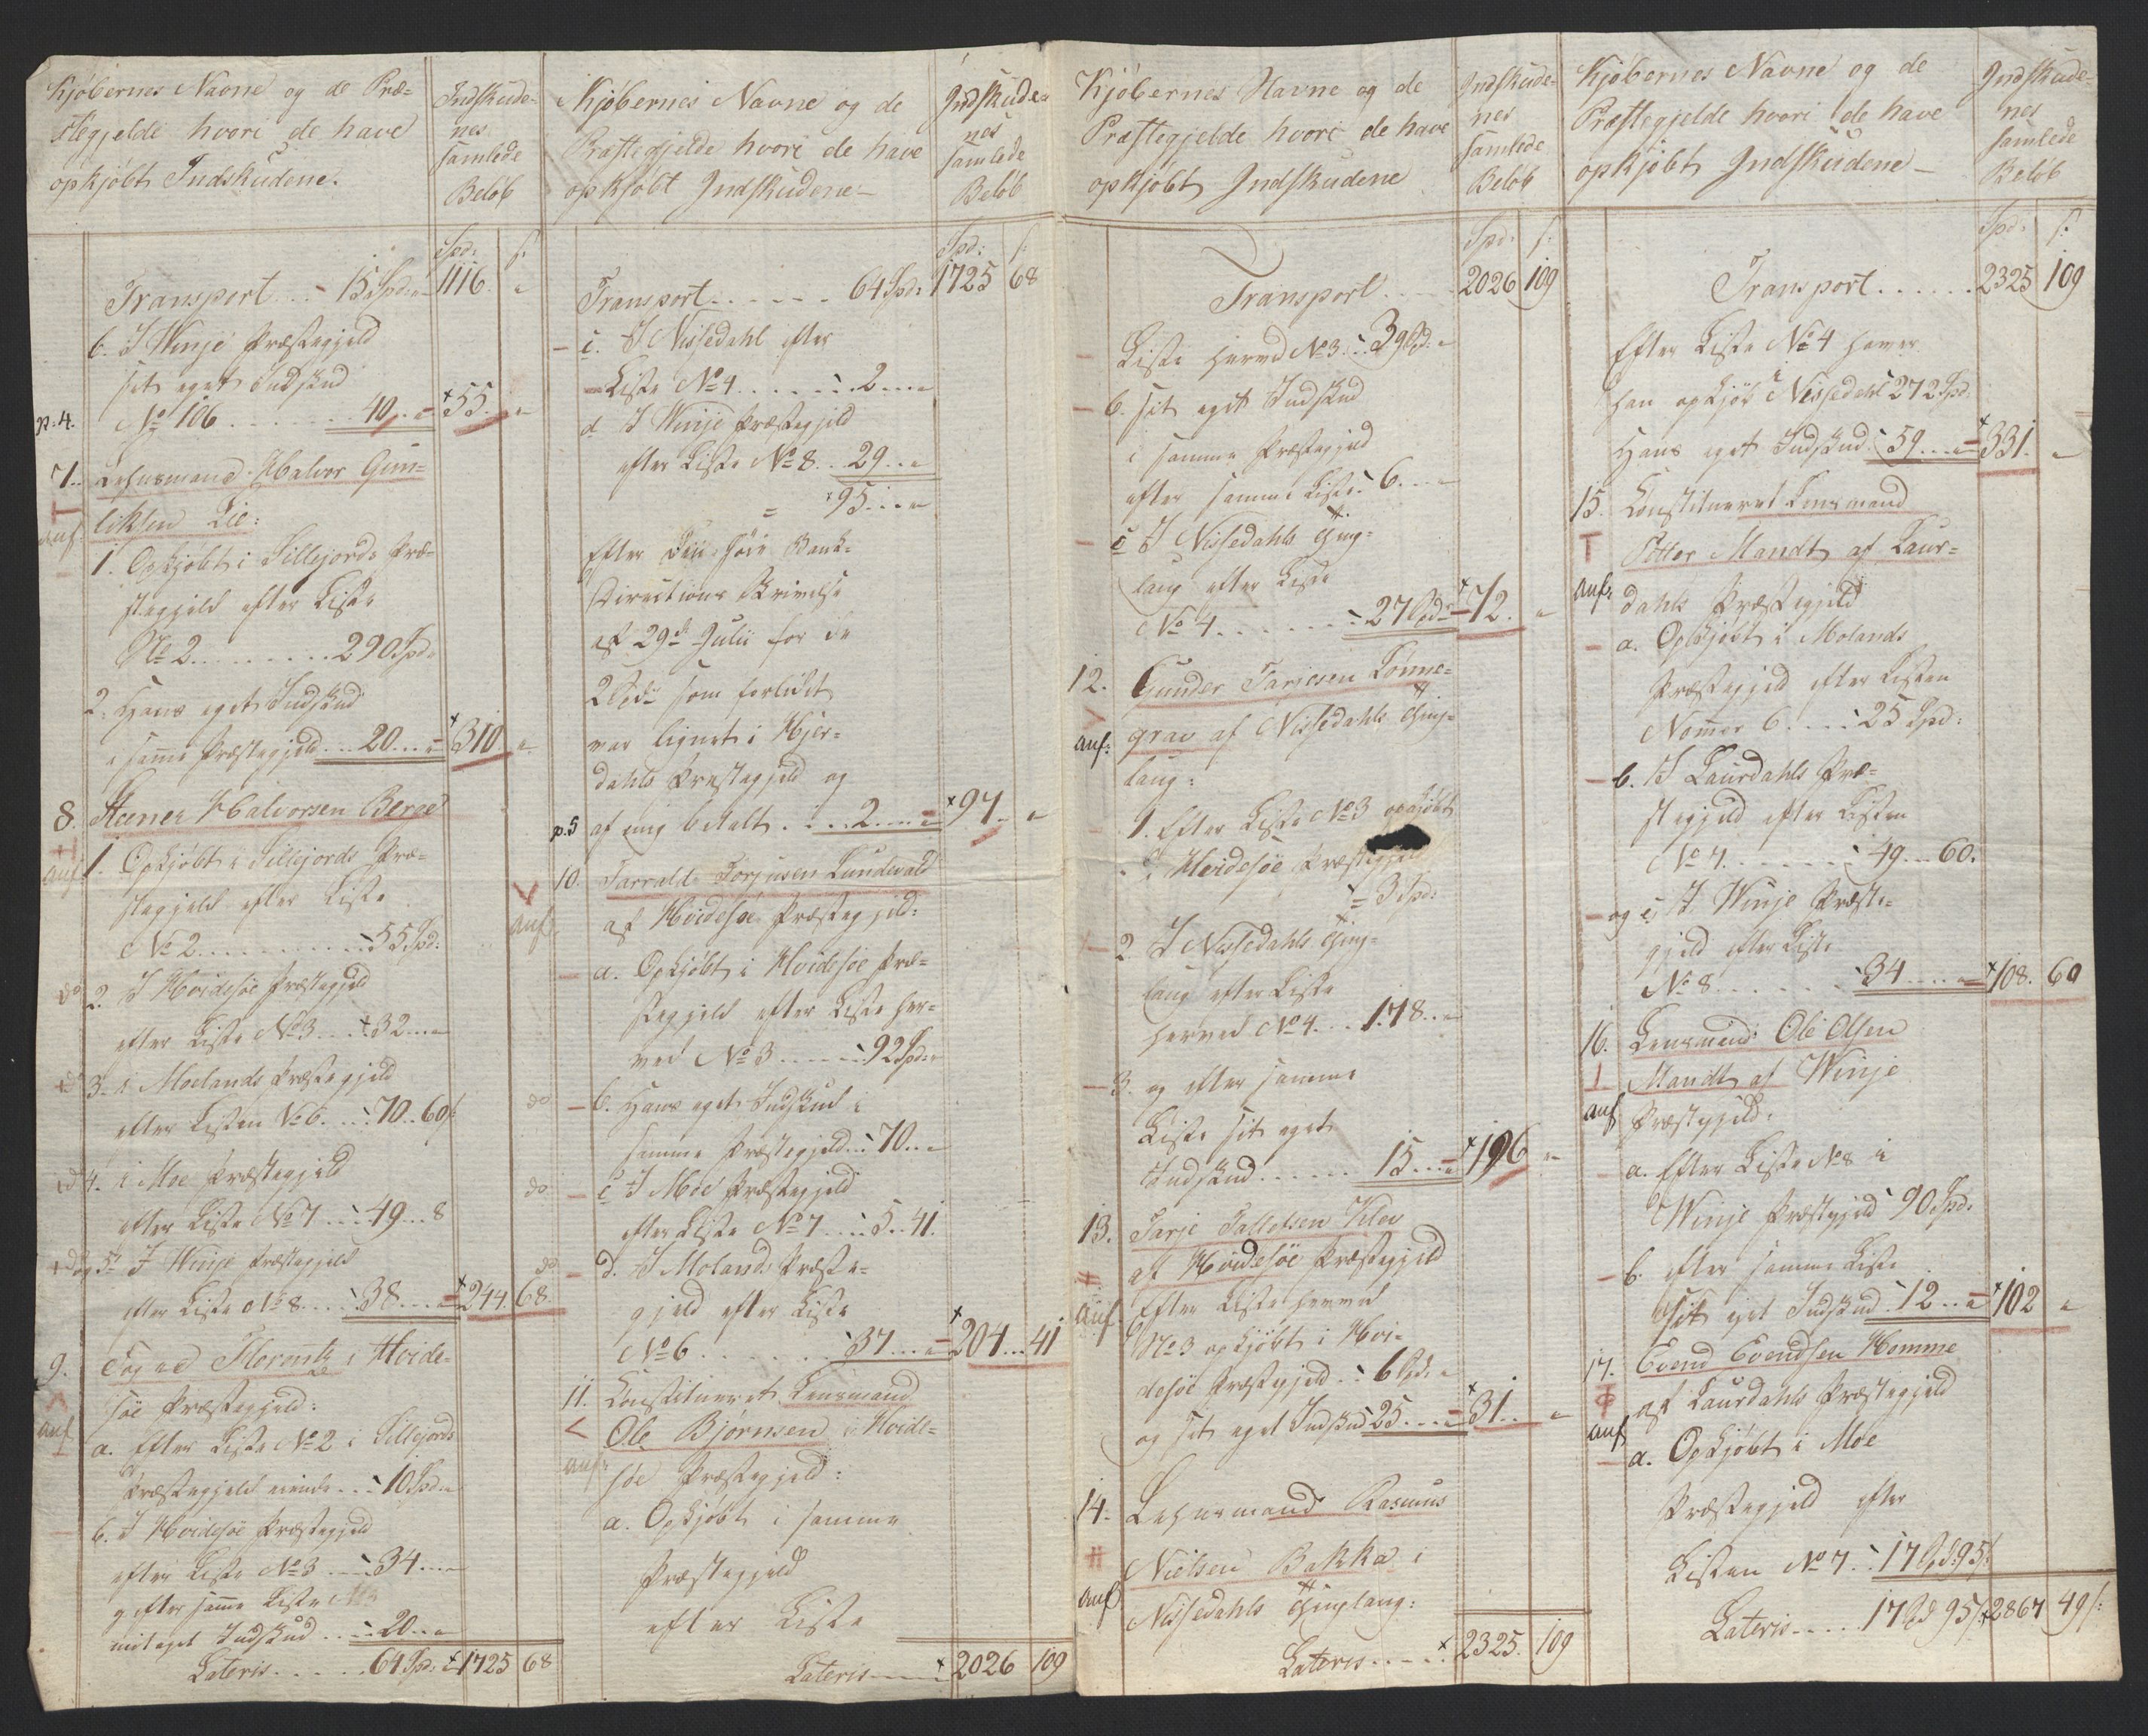 Kjøbernes Navne og de Præ-
stegjelde hvori de have
opkjøbt Indskudene.
Indskude-
nes
samlede
Beløb
Spd: s:
Transport . . - 15 Spd: " 1116. "
b. I Winje Præstegjeld
sit eget Indskud
p. 4. No 106 . . . . . . 40 . . " 55. "
7. Lehnsmand Halvor Gun-
auf. liksen Lie:
1. Opkjøbt i Sillejords Præ-
stegjeld efter Liste
No 2 . . . . . . . . . 290 Spd:
2. Hans eget Indskud
i samme Præstegjeld . . . 20 . . . " 310 "
8. Steener Halvorsen Berge
auf. 1. Opkjøbt i Sillejords Præ-
stegjeld efter Liste
No 2 . . . . . . . . . 55 Spd:
do 2. I Hvidesøe Præstegjeld
efter Liste No 3 . . . 32 . . . "
do 3. i Moelands Præstegjeld
efter Listen No 6. . . . 70 . . 60 s
do 4. i Moe Præstegjeld
efter Liste No 7 . . . 49 . . . 8
do og 5te I Winje Præstegjeld
efter Liste No 8 . . . . 38 . . . " 244. 68.
9. Tagne Florentz i Hvide-
søe Præstegjeld:
auf a. Efter Liste No 2 i Sillejords
Præstegjeld eiende . . . 10 Spd: "
b. I Hvidesøe Præstegjeld
efter Liste No 3 . . . . 34 . . . "
og efter samme Liste No
mit eget Indskud . . . . 20 . . "
Lateris . . . . . 64 Spd: " 1725 68
Kjøbernes Navne og de
Præstegjelde hvori de have
opkjøbt Indskudene -
Indskude-
nes
samlede
Beløb
Spd: s:
Transport . . . . . . 64 Spd: 1725 68
c. I Nissedahl efter
Liste No 4 . . . . . . 2 . . . "
d I Winje Præstegjeld
efter Liste No 8 . . 29 . . "
= 95 . . . "
Efter Den høie Bank-
Directions Skrivelse
af 29de Julii for de
2 Spd: som forlidet
var lignet i Hjer-
dahls Præstegjeld og
p. 5 af mig betalt . . . . 2 . . . " 97 . "
10. Tarrald Torjusen Lundevald
auf. af Hvidesøe Præstegjeld:
a. Opkjøbt i Hvidesøe Præ-
stegjeld efter Liste her-
ved No 3 . . . . . . 92 Spd: "
do b. Hans eget Indskud i
samme Præstegjeld . . 70 . . "
do c I Moe Præstegjeld
efter Liste No 7 . . . . 5 . . 41.
do d. I Molands Præste-
gjeld efter Liste
No 6 . . . . . . . 37 . . . " 204 . . . 41
11. Constitueret Lensmand
Ole Bjørnsen i Hvide-
auf: søe Præstegjeld:
a. Opkjøbt i samme
Præstegjeld
efter Liste
Lateris . . . . 2026 109
Kjøbernes Navne og de
Præstegjelde hvori de have
opkjøbt Indskudene
Indskude-
nes
samlede
Beløb
Spd: s:
Transport . . . . 2026 109
Liste herved No 3 . . 39 Spd: "
b. sit eget Indskud
i samme Præstegjeld
efter samme Liste . . 6 . . . "
c I Nissedahls Thing-
laug efter Liste
No 4 . . . . . . . 27 Spd: " 72. "
12. Gunder Tarjesen Lønne-
auf: grav af Nissedahls Thing-
laug:
1. Efter Liste No 3 opkjøbt
i Hvidesøe Præstegjeld
= 3 Spd:
2 I Nissedahls Thing-
laug efter Liste
herved No 4. . . 178 . . "
3. og efter samme
Liste sit eget
Indskud . . . . . . 15 . . . " 196 "
13. Tarje Tallefsen Kilen
af Hvidesøe Præstegjeld
auf. Efter Liste herved
No 3 opkjøbt i Hvi-
desøe Præstegjeld . . 6 Spd: "
og sit eget Indskud 25 . . . " 31 . . "
14. Lehnsmand Rasmus
Nielsen Bakka i
auf Nissedahls Thinglaug:
Lateris . . . . 2325. 109
Kjøbernes Navne og de
Præstegjelde hvori de have
opkjøbt Indskudene -
Indskude-
nes
samlede
Beløb
Spd: s:
Transport . . . . . . 2325 109
Efter Liste No 4 haver
han opkjøb i Nissedahl 272 Spd:
Hans eget Indskud . 59 . . . " 331. "
15. Constitueret Lensmand
Petter Mandt af Laur-
auf: dahls Præstegjeld
a. Opkjøbt i Molands
Præstegjeld efter Listen
Nommer 6 . . . . 25 Spd:
b. I Laurdahls Præ-
stegjeld efter Listen
No 4 . . . . . . . 49 . . . 60.
og c, I Winje Præste-
gjeld efter Liste
No 8 . . . . . . . . 34 . . . . " 108. 60
16. Lensmand Ole Olsen
Mandt af Winje
auf Præstegjeld.
a. Efter Liste No 8 i
Winje Præstegjeld 90 Spd:
b. efter samme Liste
sit eget Indskud . 12 . . " 102 "
17. Evend Evendsen Homme
af Laurdahls Præstegjeld
auf a. Opkjøbt i Moe
Præstegjeld efter
Listen No 7 . . 17 Spd: 95 s
Lateris . . . . . 17 Spd 95 s 2867 49 s: